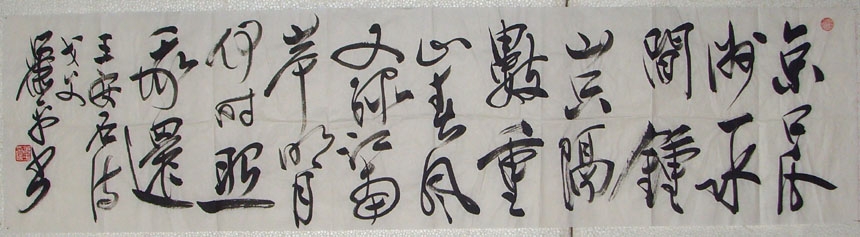 京口瓜
洲一水
間鍾
山只隔
數重
山春風
又綠江南
岸明月
何时照
我還
王安石诗
书